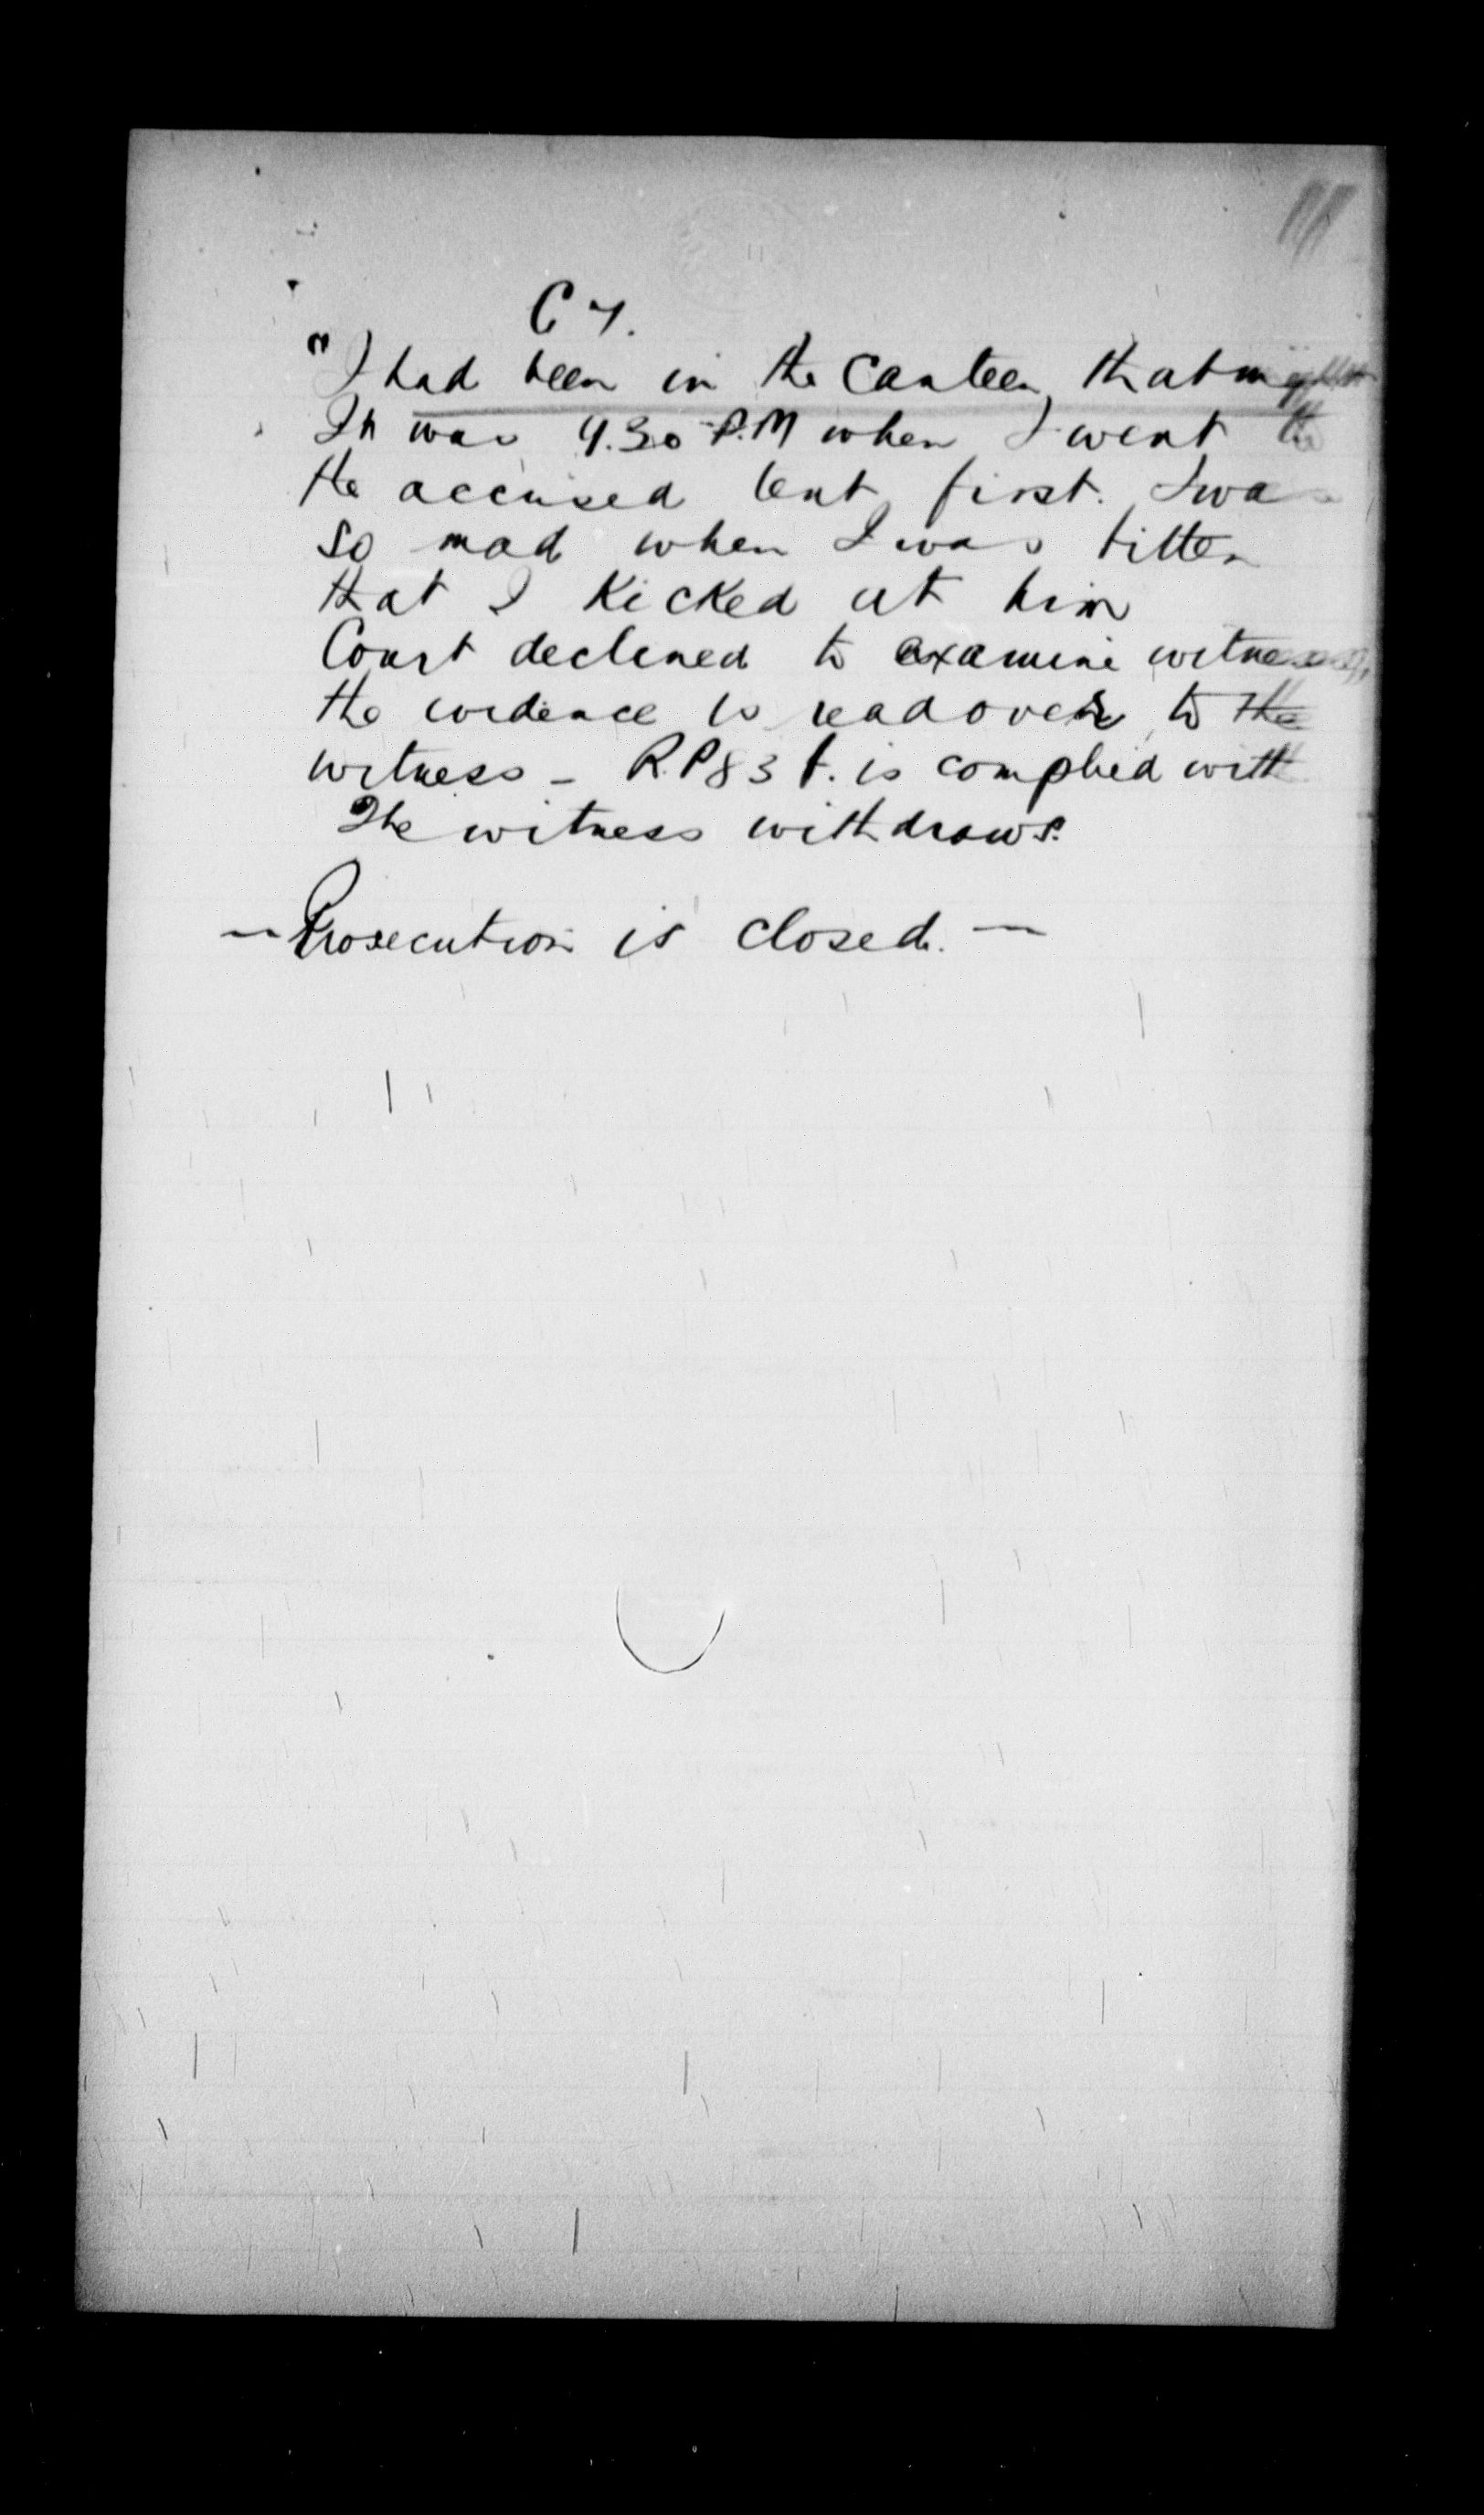 C 7.
"I had been in the Canteen that night
It was 9.30 P.M when I went to
the accused tent first. I was
so mad when I was bitten
that I kicked at him
Court declined to examine witness,
the evidence is read over to the
witness - R.P 83 B. is complied with
The witness withdraws.
- Prosecution is closed. -